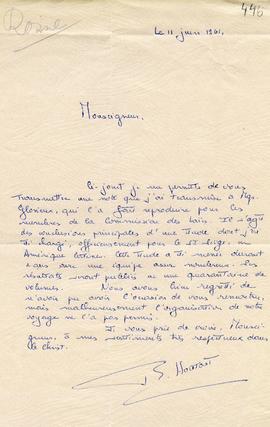 446
Le 11, juin 1961.
Monseigneur,
Ci-joint je me permets de vous
transmettre une note que j'ai transmise à Mgr.
Glorieux, qui l'a fait reproduire pour les
membres de la Commission des laïcs. Il s'agit
des conclusions principales d'une étude dont j'ai
été chargé, officieusement pour le St Siège, en
Amérique latine. Cette étude a été menée durant
4 ans avec une équipe assez nombreuse. Les
résultats seront publiés en une quarantaine de
volumes. Nous avons bien regretté de
n'avoir pas avoir l'occasion de vous rencontrer,
mais malheureusement l'organisation de notre
voyage ne l'a pas permis.
Je vous prie de croire, Monsei-
gneur, à mes sentiments très respectueux dans
le Christ.
Houtart